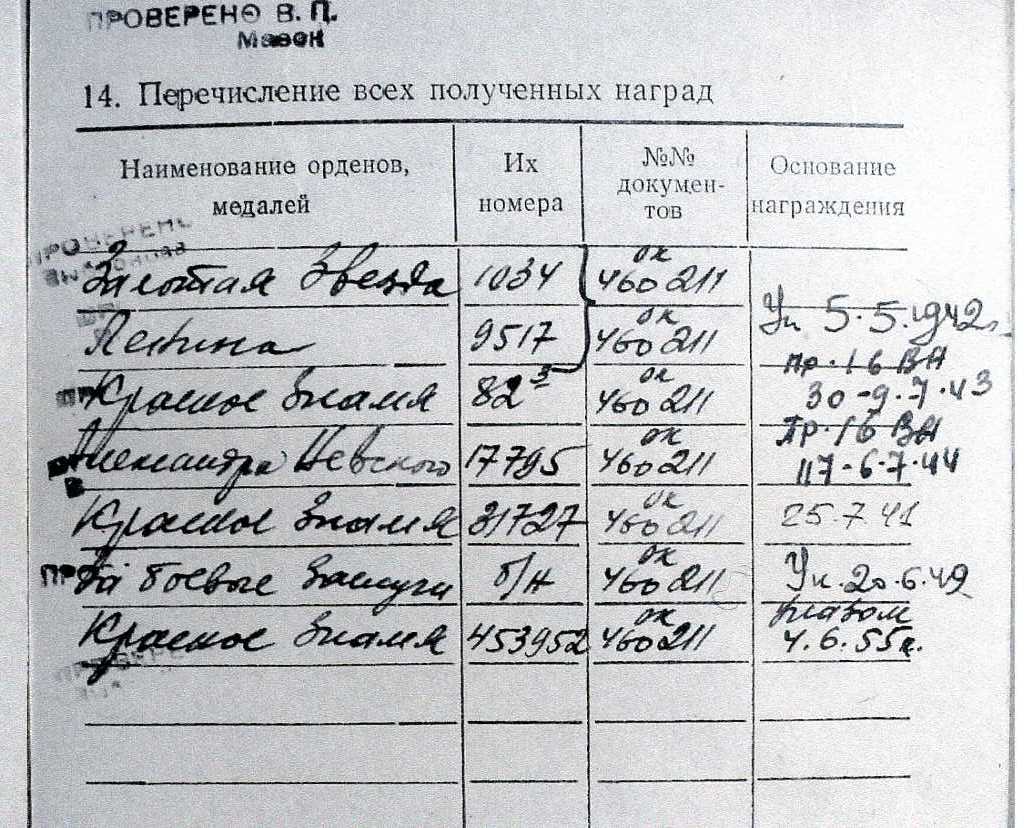 ПРОВЕРЕНО В. П.
14. Перечисление всех полученных наград
Наименование орденов, медалей Их номера №№ документов Основание награждения
ПРОВЕРЕНО
Золотая Звезда 1034 ОК 460211
Ленина 9517 ОК 460211 Ук 5.5.1942г
Красное Знамя 82 ОК 460211 пр. 16 ВА 30-9.7.43
Александра Невского 17795 ОК 460211 Пр. 16 ВА 117-6.7.44
Красное Знамя 31727 ОК 460211 25.7.41
За боевые заслуги б/н ОК 460211 Ук. 20.6.49
Красное Знамя 453952 ОК 460211 4.6.55г.